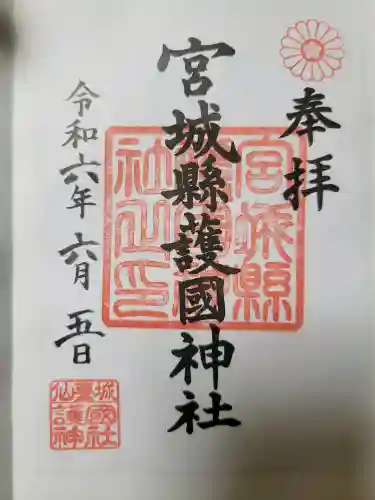 奉拝
宮城縣護國神社
令和六年六月五日
宮城縣護國神社之印